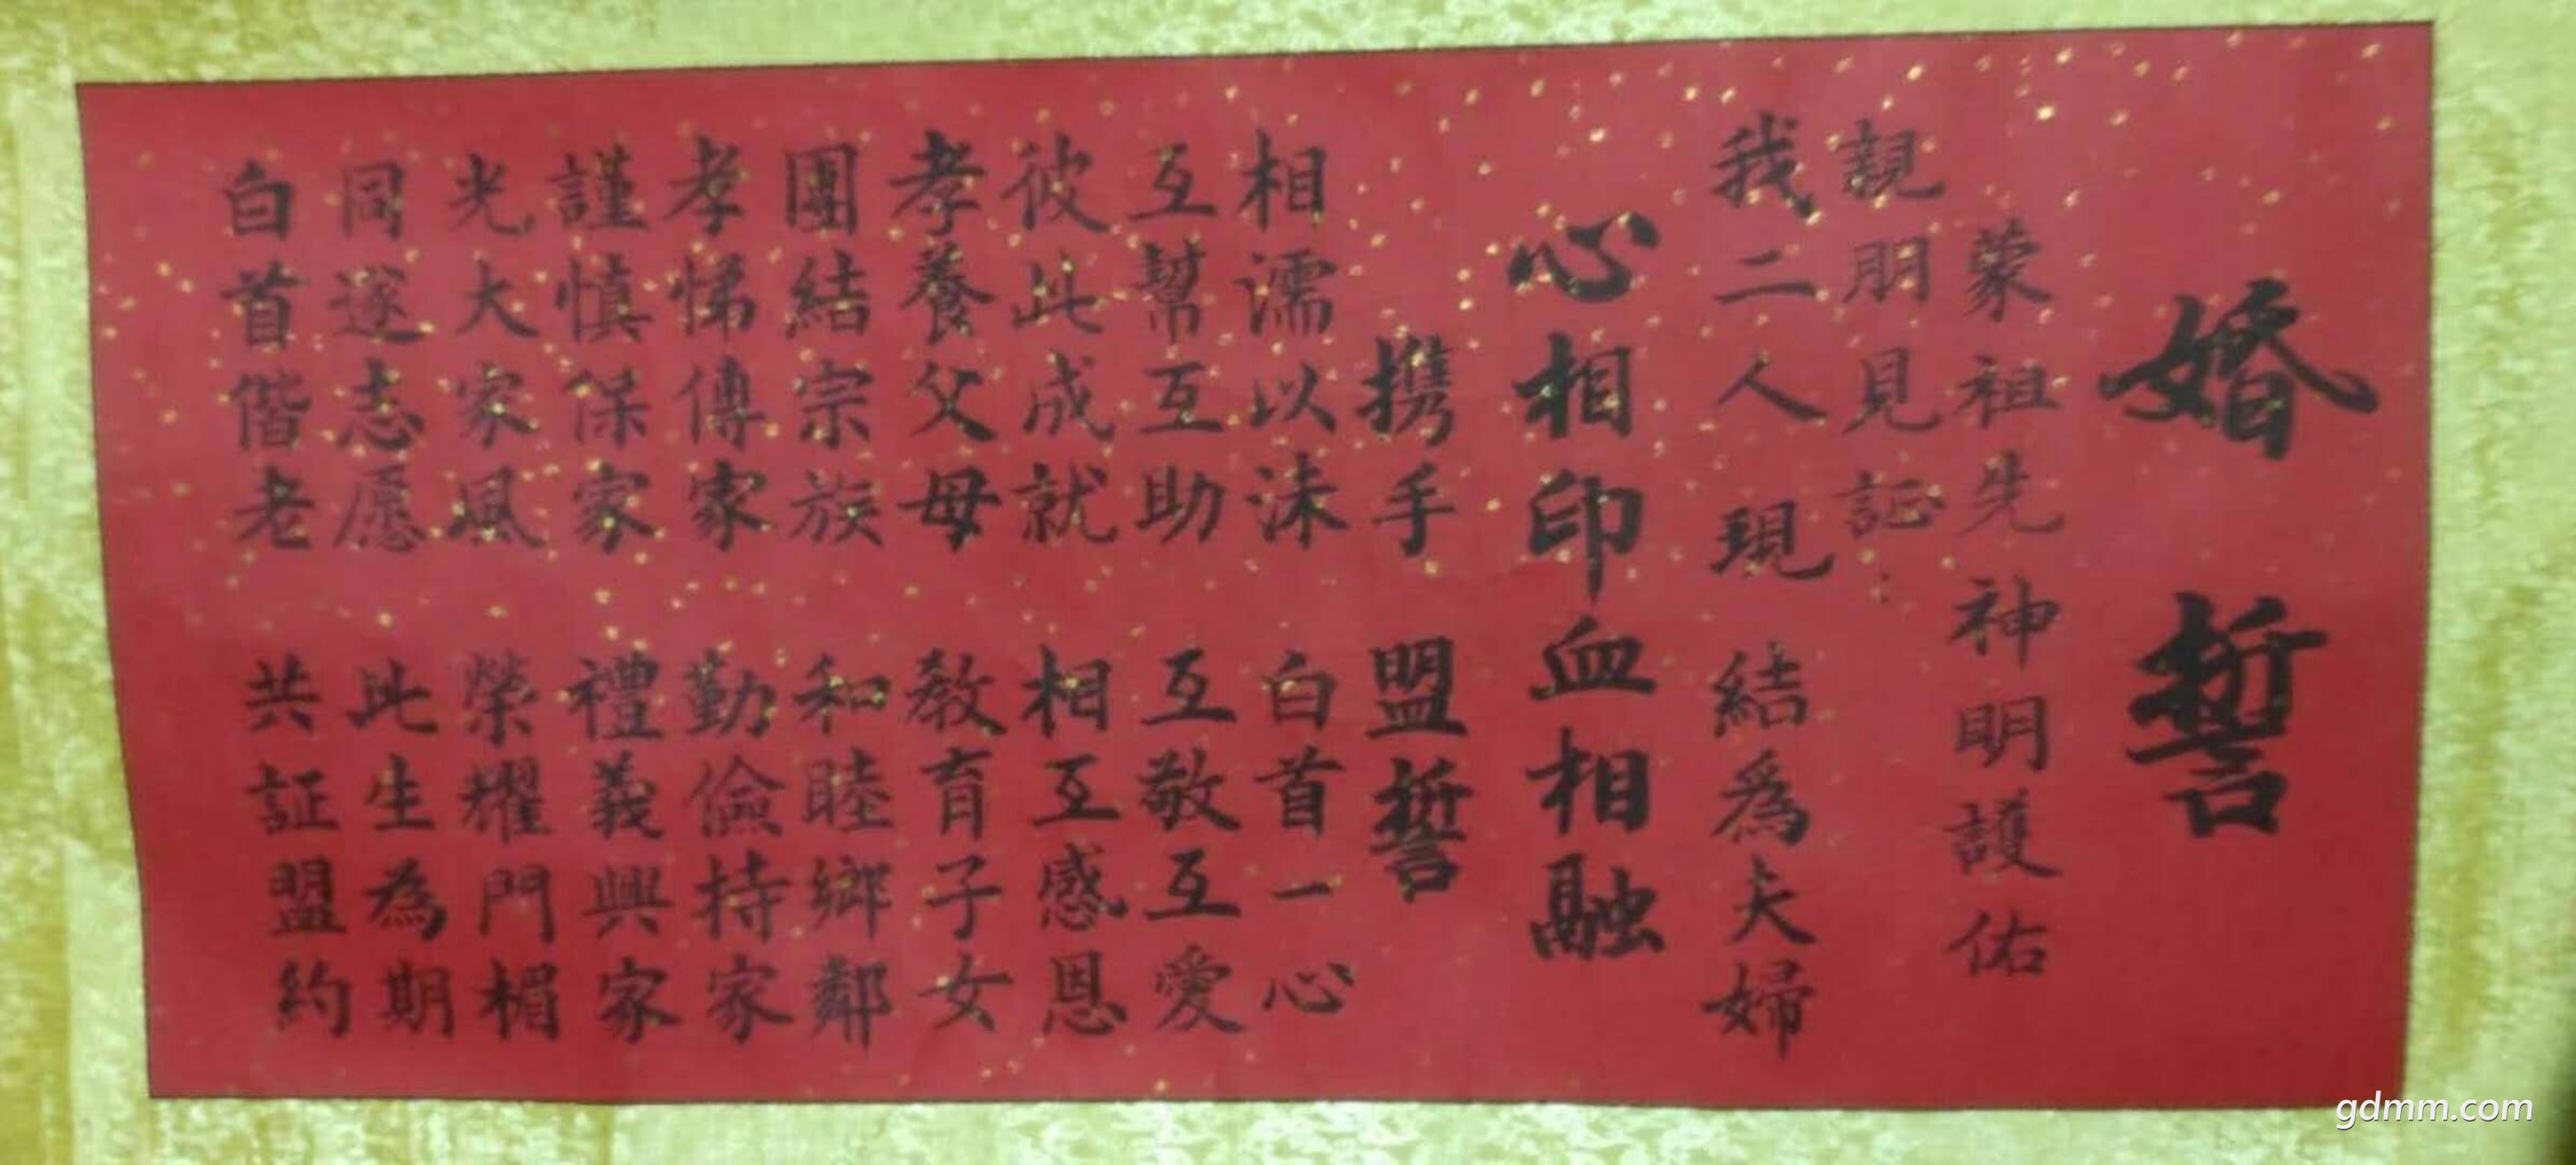 婚誓
蒙祖先神明護佑
親朋見証:
我二人現結為夫婦
心相印血相融
携手盟誓
相濡以沫白首一心
互幫互助互敬互愛
彼此成就相互感恩
孝養父母教育子女
團結宗族和睦鄉鄰
孝悌傳家勤儉持家
謹慎保家禮義興家
光大家風榮耀門楣
同遂志愿此生為期
白首偕老共証盟約
gdmm.com